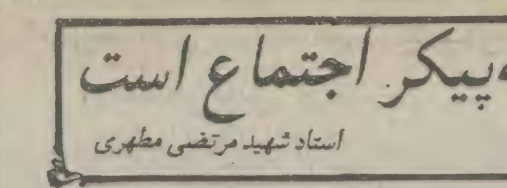 پیکر اجتماع است
استاد شهید مرتضی مطهری